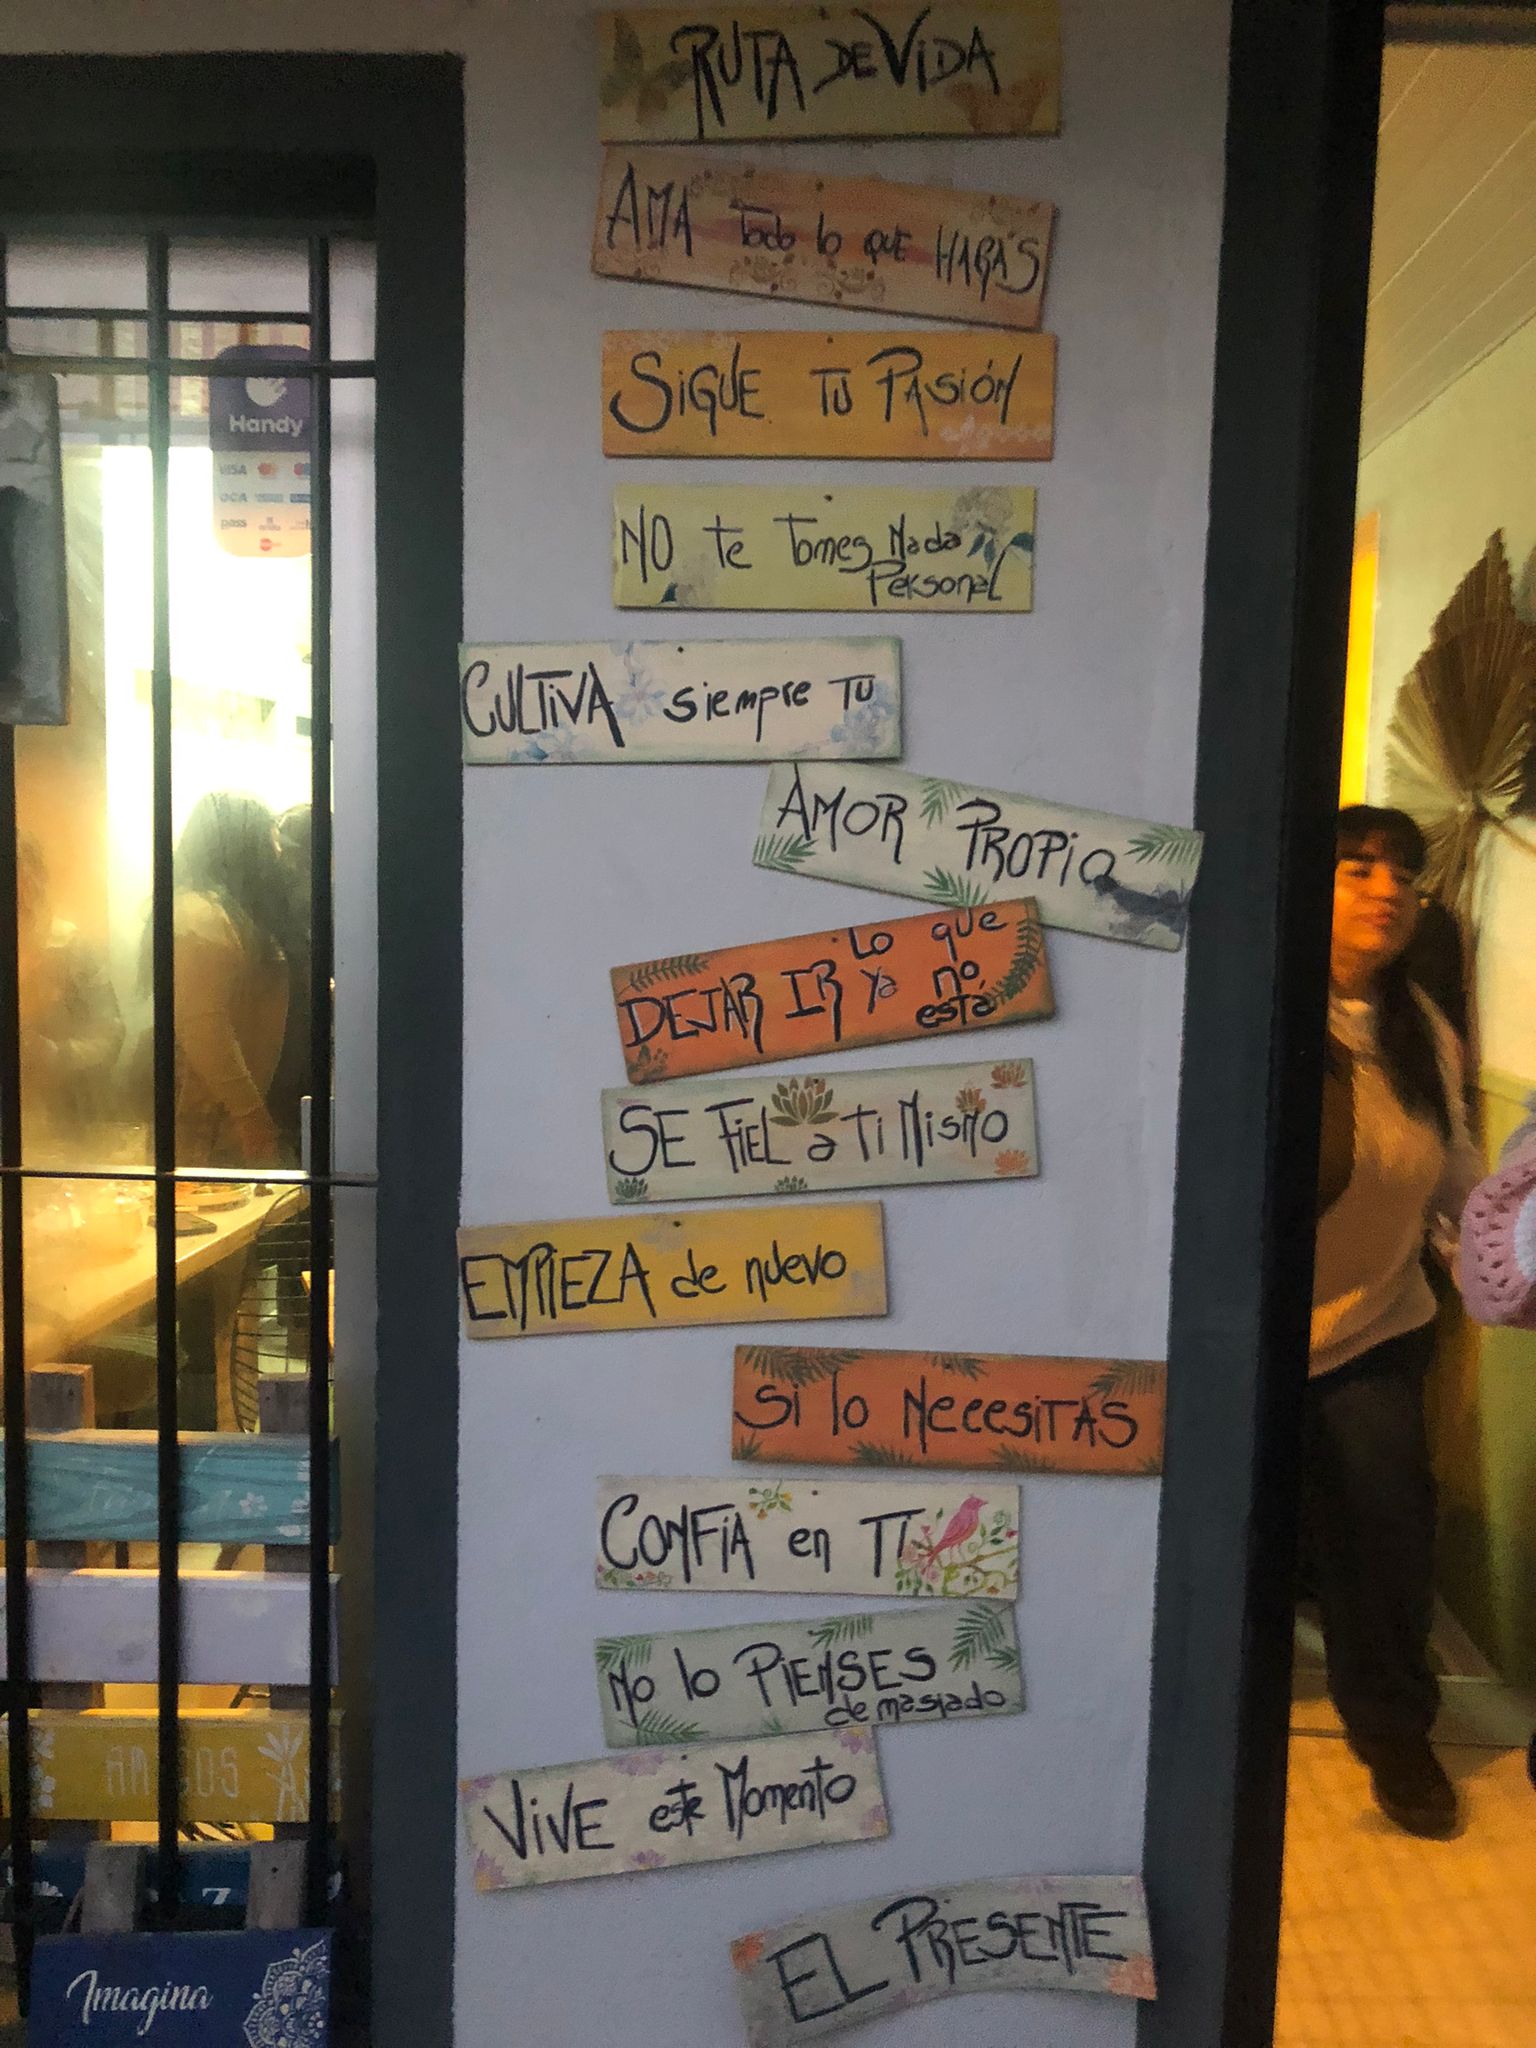 RUTA DE VIDA
AMA Todo lo QUE HARÁS
SiGUE TU PASióN
NO te tomes Nada
PERSONAL
CULTiVA siempre TU
AMOR PROPiO
DEJAR IR Lo que
ya no
está
SE FIEL a Ti MisMO
EMPIEZA de nuevo
Si lo NecesiTAS
CONFíA en TI
No lo PIENSES
demasiado
ViVE este Momento
EL PRESENTE
Handy
VISA
OCA
pass
AMIGOS
Imagina